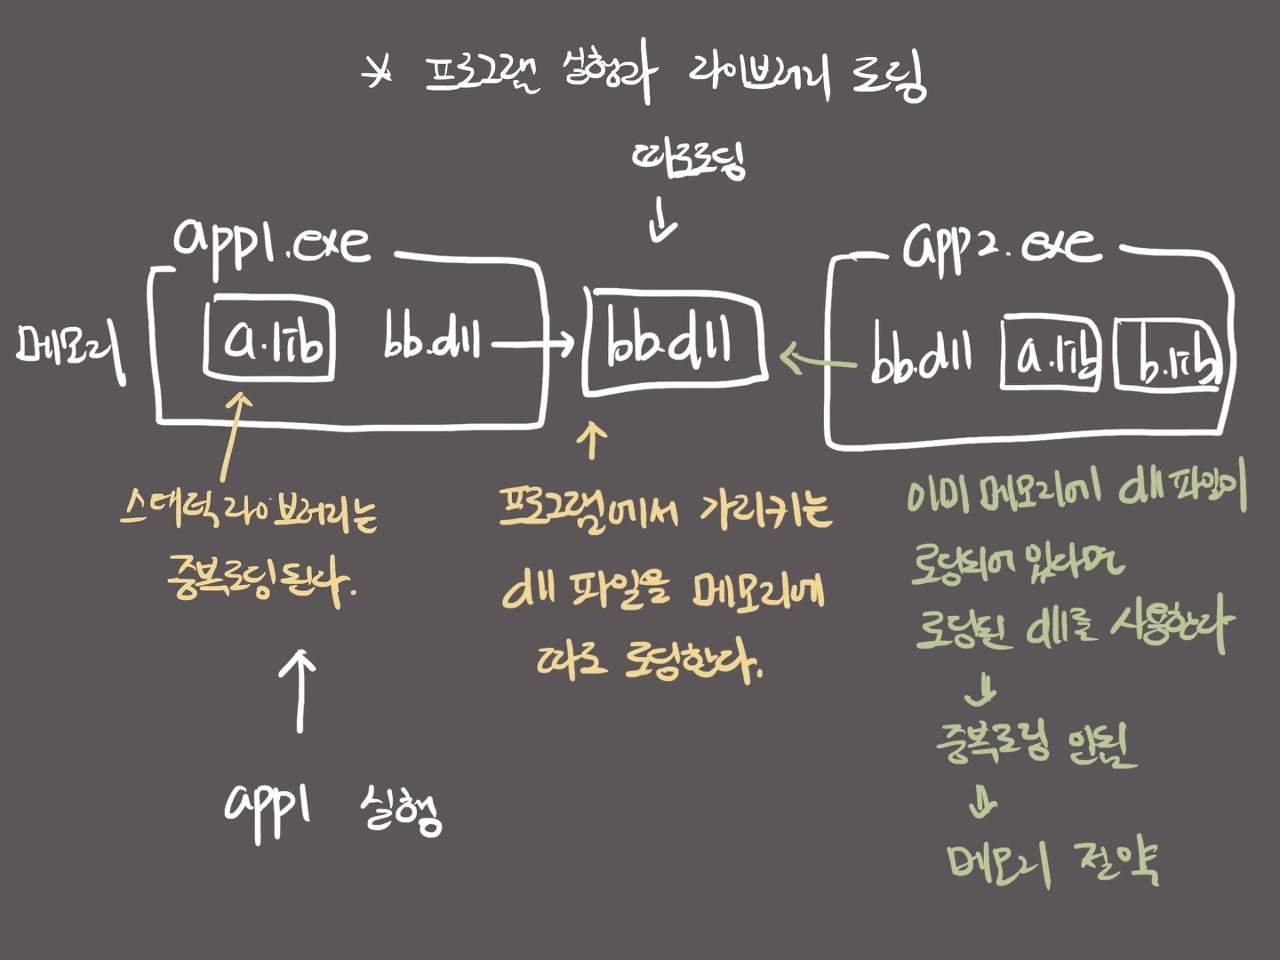 * 프로그램 실행과 라이브러리 로딩
따로로딩
app1.exe
app2.exe
메모리
a.lib
bb.dll
bb.dll
bb.dll
a.lib
b.lib
스태틱 라이브러리는
중복로딩된다.
프로그램에서 가리키는
dll 파일을 메모리에
따로 로딩한다.
이미 메모리에 dll 파일이
로딩되어 있다면
로딩된 dll를 사용한다
중복로딩 안됨
메모리 절약
app1 실행